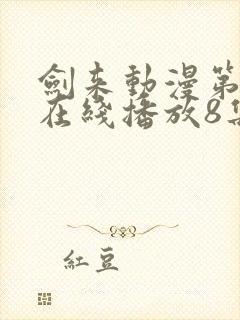 劍来動漫第
在綫播放8集
紅豆